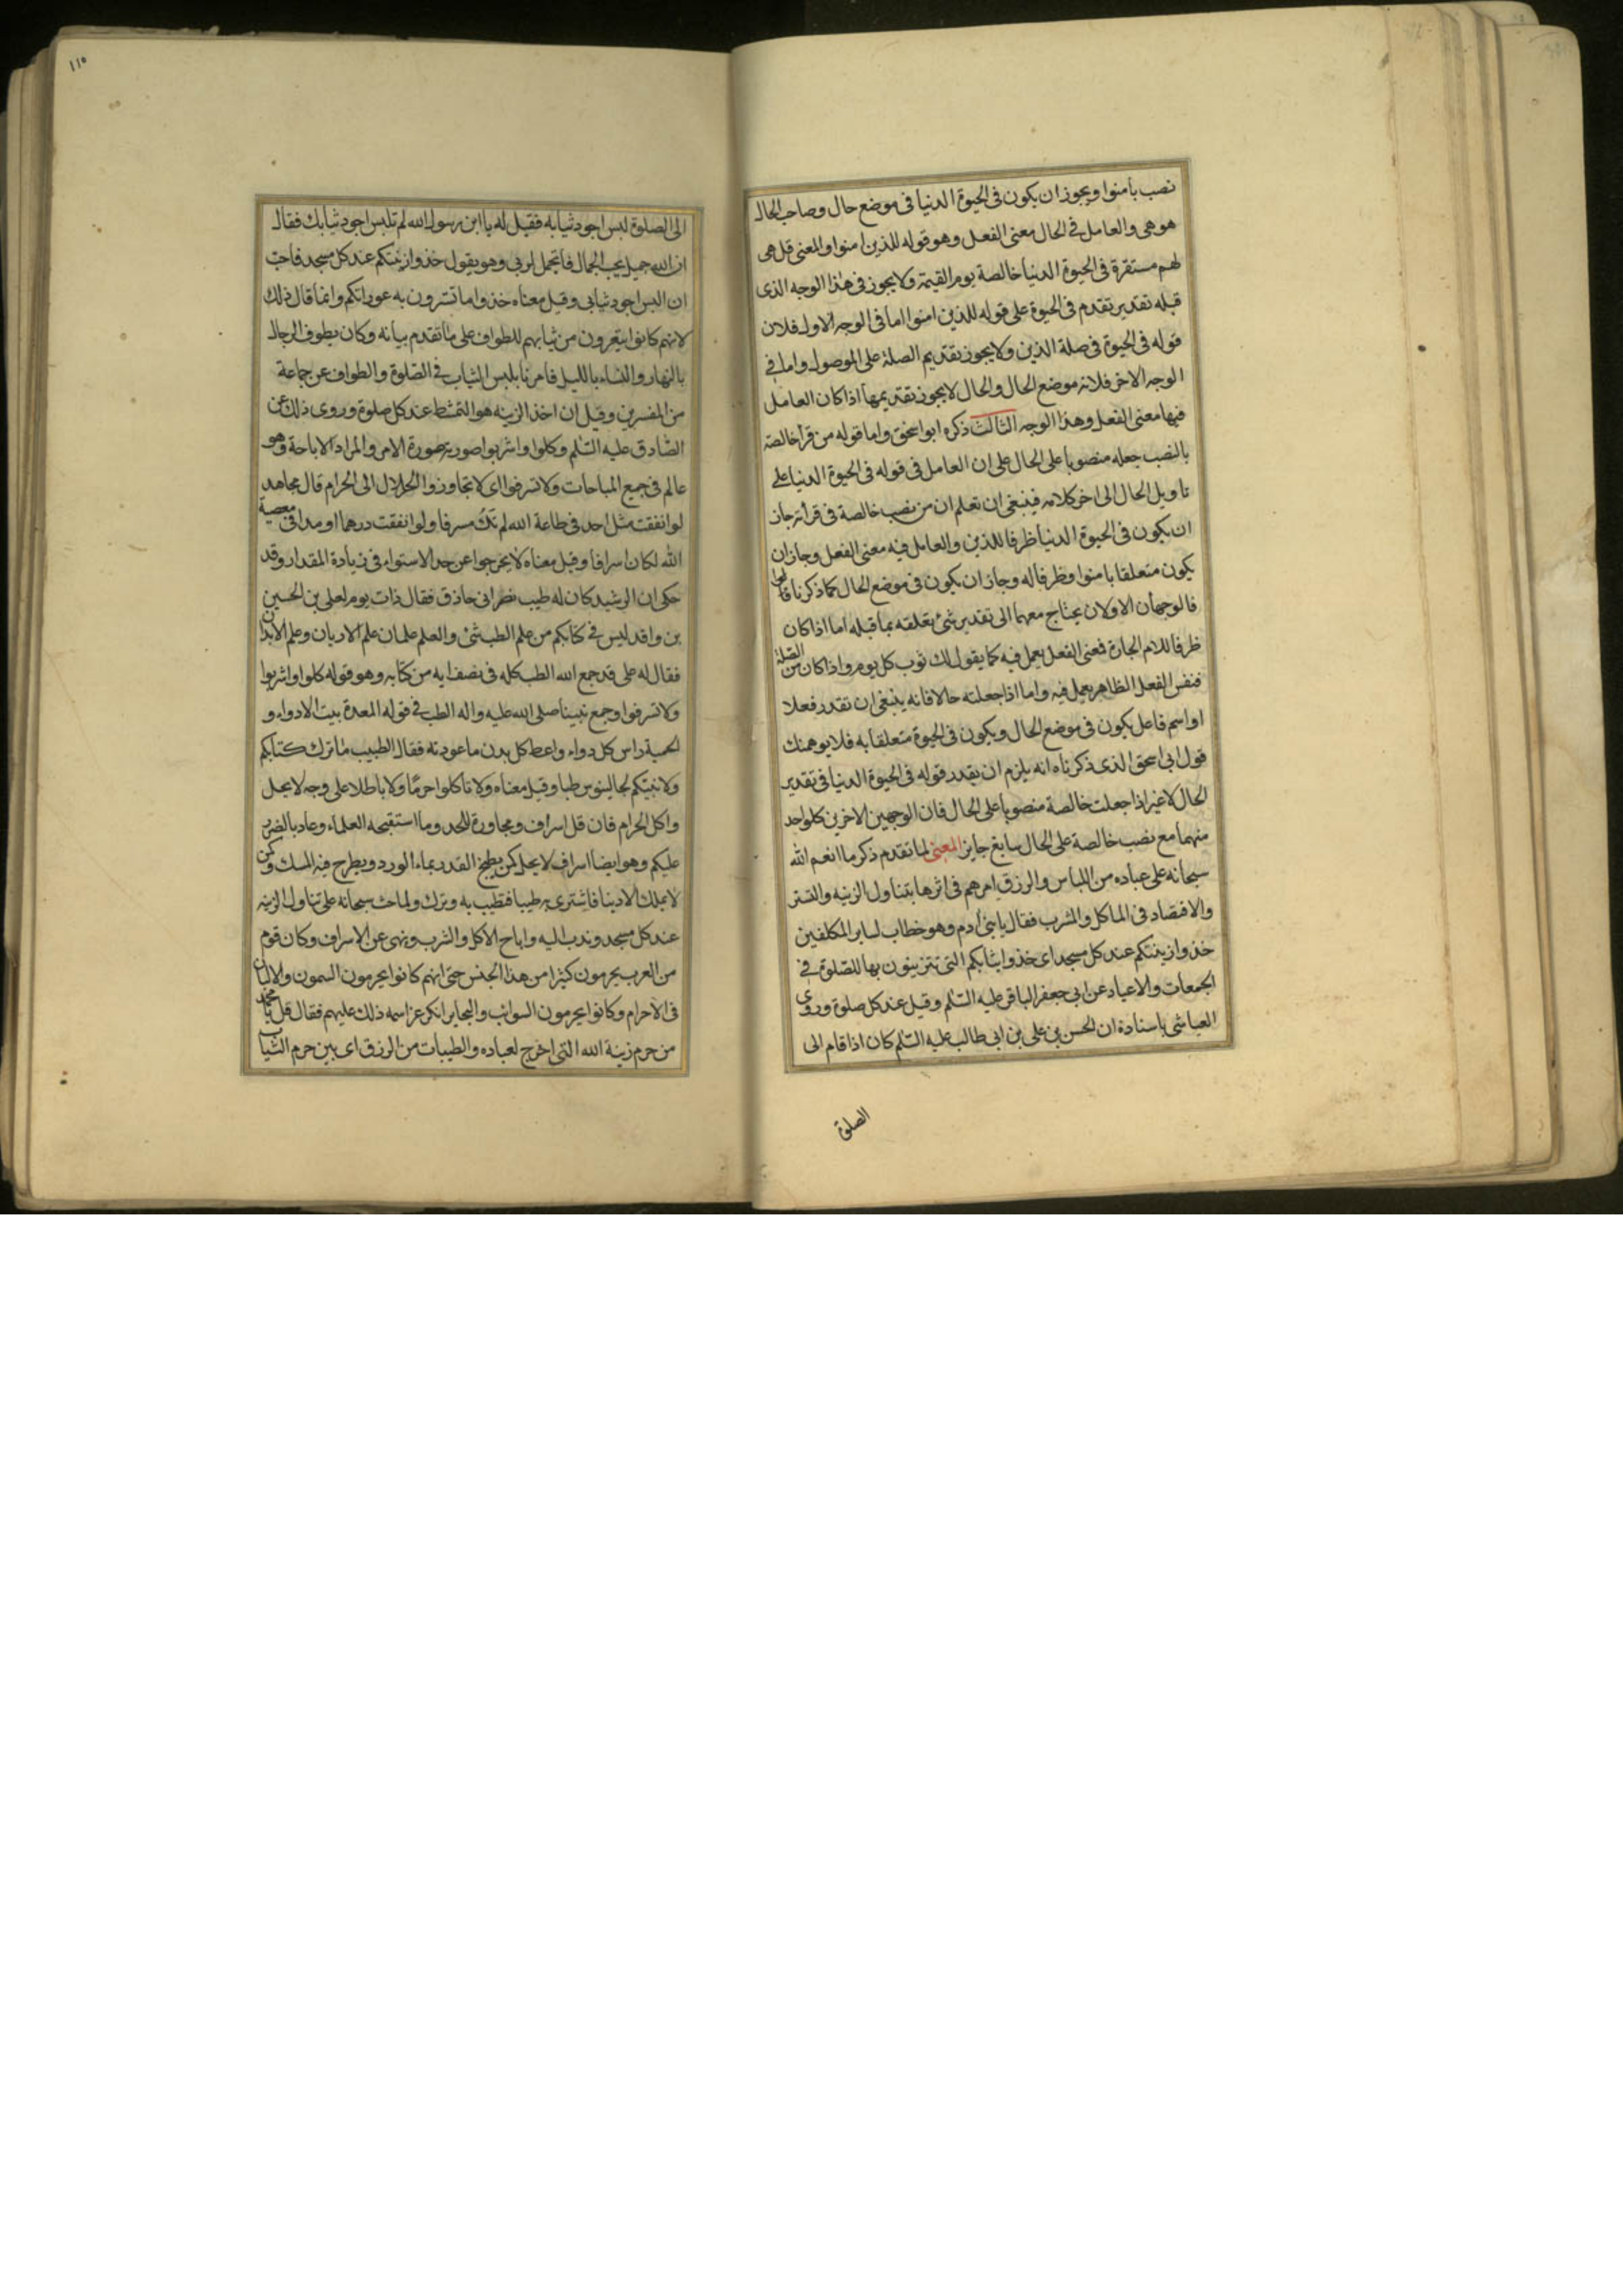 نصب بامنوا ويجوز ان يكون فى الحيوة الدنيا فى موضع حال وصاحب الحال
هو هى والعامل فى الحال معنى الفعل وهو قوله للذين امنوا والمعنى قل هى
لهم مستقرة فى الحيوة الدنيا خالصة يوم القيمة ولا يجوز فى هذا الوجه الذى
قبله تقدير تقدم فى الحيوة على قوله للذين امنوا اما فى الوجه الاول فلان
قوله فى الحيوة فى صلة الذين ولا يجوز تقديم الصلة على الموصول واما فى
الوجه الاخر فلانه موضع الحال والحال لا يجوز تقديمها اذا كان العامل
فيها معنى الفعل وهذا الوجه الثالث ذكره ابو اسحق واما قوله من قرأ خالصة
بالنصب جعله منصوبا على الحال على ان العامل فى قوله فى الحيوة الدنيا على
تاويل الحال الى اخر كلامه فينبغى ان تعلم ان من نصب خالصة فى قرأته جاز
ان يكون فى الحيوة الدنيا ظرفا للذين والعامل فيه معنى الفعل وجاز ان
يكون متعلقا بامنوا وظرفا له وجاز ان يكون فى موضع الحال كما ذكرنا
فالوجهان الاولان يحتاج معهما الى تقدير شئ يعلقه بما قبله اما اذا كان
ظرفا للام الجارة فمعنى الفعل يعمل فيه كما يقول لك ثوب كل يوم واذا كان من الصلة
فنفس الفعل الظاهر يعمل فيه واما اذا جعلته حالا فانه ينبغى ان تقدر فعلا
او اسم فاعل يكون فى موضع الحال ويكون فى الحيوة متعلقا به فلا يوهمنك
قول ابى اسحق الذى ذكرناه انه يلزم ان يقدر قوله فى الحيوة الدنيا فى تقدير
الحال لا غير اذا جعلت خالصة منصوبا على الحال فان الوجهين الاخرين كل واحد
منهما مع نصب خالصة على الحال سايغ جايز المعنى لما تقدم ذكر ما انعم الله
سبحانه على عباده من اللباس والرزق امرهم فى اثرها بتناول الزينه والتستر
والاقتصاد فى الماكل والمشرب فقال يا بنى ادم وهو خطاب لساير المكلفين
خذوا زينتكم عند كل مسجد اى خذوا ثيابكم التى تتزينون بها للصلوة فى
الجمعات والاعياد عن ابى جعفر الباقر عليه السلم وقيل عند كل صلوة وروى
العياشى باسناده ان الحسن بن على بن ابى طالب عليه السلم كان اذا قام الى
الصلوة
١١٥
الى الصلوة لبس اجود ثيابه فقيل له يا ابن رسول الله لم تلبس اجود ثيابك فقال
ان الله جميل يحب الجمال فاتجمل لربى وهو يقول خذوا زينتكم عند كل مسجد فاحب
ان البس اجود ثيابى وقيل معناه خذوا ما تسترون به عوراتكم وانما قال ذلك
لانهم كانوا يتعرون من ثيابهم للطواف على ما تقدم بيانه وكان يطوف الرجال
بالنهار والنساء بالليل فامرنا بلبس الثياب فى الصلوة والطواف عن جماعة
من المفسرين وقيل ان اخذ الزينه هو التمشط عند كل صلوة وروى ذلك عن
الصادق عليه السلم وكلوا واشربوا صورته صورة الامر والمراد الاباحة وهو
عالم فى جميع المباحات ولا تسرفوا اى لا تجاوزوا الحلال الى الحرام قال مجاهد
لو انفقت مثل احد فى طاعة الله لم تك مسرفا ولو انفقت درهما او مدا فى معصية
الله لكان اسرافا وقيل معناه لا يخرجوا عن حد الاستواء فى زيادة المقدار وقد
حكى ان الرشيد كان له طبيب نصرانى حاذق فقال ذات يوم لعلى بن الحسين
بن واقد ليس فى كتابكم من علم الطب شئ والعلم علمان علم الاديان وعلم الابدان
فقال له على قد جمع الله الطب كله فى نصف ايه من كتابه وهو قوله كلوا واشربوا
ولا تسرفوا وجمع نبينا صلى الله عليه واله الطب فى قوله المعدة بيت الادواء و
الحمية راس كل دواء واعط كل بدن ما عودته فقال الطبيب ما ترك كتابكم
ولا نبيكم لجالينوس طبا وقيل معناه ولا تاكلوا حرما ولا باطلا على وجه لا يحل
واكل الحرام فان قل اسراف ومجاورة للحد وما استقبحه العلماء وعاد بالضرر
عليكم وهو ايضا اسراف لا يحل كمن يطبخ القدر بماء الورد ويطرح فيه المسك وكمن
لا يملك الا دينا فاشترى به طيبا فتطيب به وترك ولما حث سبحانه على تناول الزينه
عند كل مسجد وندب اليه واباح الاكل والشرب ونهى عن الاسراف وكان قوم
من العرب يحرمون كثيرا من هذا الجنس حتى انهم كانوا يحرمون السمون والالبان
فى الاحرام وكانوا يحرمون السوائب والبحاير انكر عز اسمه ذلك عليهم فقال قل يا محمد
من حرم زينة الله التى اخرج لعباده والطيبات من الرزق اى بين حرم الثياب